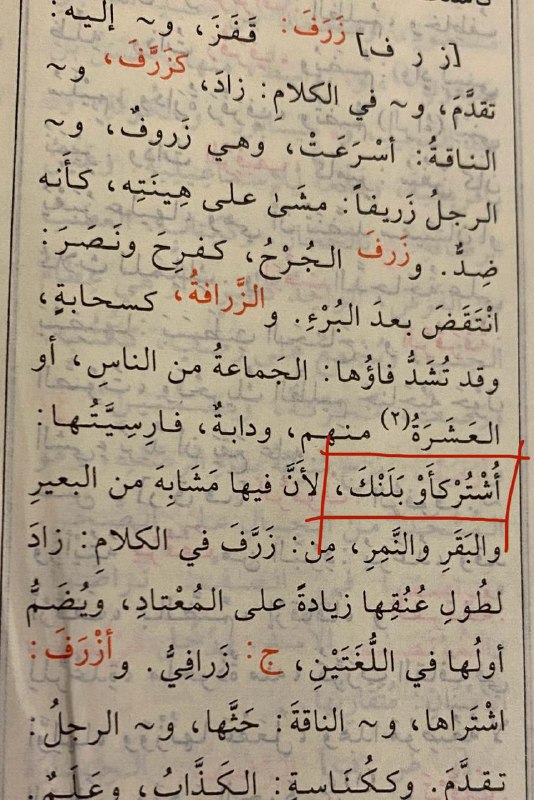 [ز ر ف] زَرَفَ: قَفَزَ، و~ إليه:
تقدَّمَ، و~ في الكلامِ: زادَ، كَزَرَّفَ، و~
الناقةُ: أسْرَعَتْ، وهي زَروفٌ، و~
الرجلُ زَريفاً: مشَىٰ على هِينَتِه، كأَنه
ضِدٌّ. وزَرفَ الجُرْحُ، كفرِحَ ونَصَرَ:
انْتَقَضَ بعدَ البُرْءِ. والزَّرافةُ، كسحابةٍ،
وقد تُشَدُّ فاؤُها: الجَماعةُ من الناسِ، أو
العَشَرَةُ(٢) منهم، ودابةٌ، فارِسِيَّتُها:
أُشْتُرْكأَوْ بَلَنْكَ، لأَنَّ فيها مَشَابِهَ من البعيرِ
والبَقَرِ والنَّمِرِ، مِن: زَرَّفَ في الكلامِ: زادَ
لطُولِ عُنُقِها زيادةً على المُعْتادِ، ويُضَمُّ
أولُها في اللُّغَتَيْنِ، ج: زَرافِيُّ. وأزْرَفَ:
اشْتَراها، و~ الناقةَ: حَثَّها، و~ الرجلُ:
تقدَّمَ. وككُنَاسةٍ: الكَذَّابُ، وعَلَمٌ.